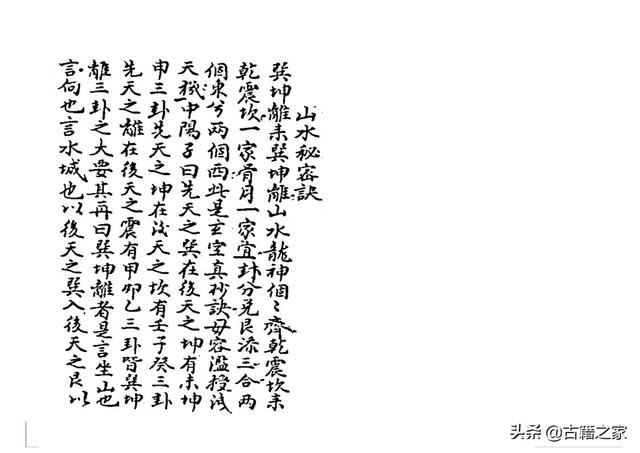 山水秘密訣
巽坤離来巽坤離山水龍神個〻齊乾震坎来
乾震坎一家骨月一家宜卦分兌艮添三合兩
個東兮兩個西此是玄空真秒訣毋容濫授浅
天機中陽子曰先天之巽在後天之坤有未坤
申三卦先天之坤在後天之坎有壬子癸三卦
先天之離在後天之震有甲卯乙三卦皆巽坤
離三卦之大要其再曰巽坤離者是言坐山也
言向也言水城也以後天之巽入後天之艮以
头条 @古籍之家